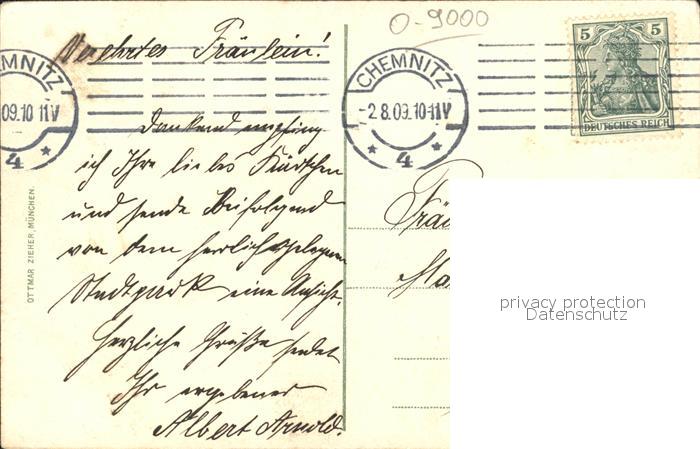 0-9000
Verehrtes Fräulein!
CHEMNITZ
09.10 11V
4
CHEMNITZ
-2.8.09.10-11V
* 4 *
5 5
DEUTSCHES REICH
Dankend empfing
ich Ihr liebes Kärtchen
und sende Beifolgend
von dem herrlich gelegenen
Stadtpark eine Ansicht.
Herzliche Grüße sendet
Ihr ergebener
Albert Arnold.
OTTMAR ZIEHER, MÜNCHEN.
privacy protection
Datenschutz